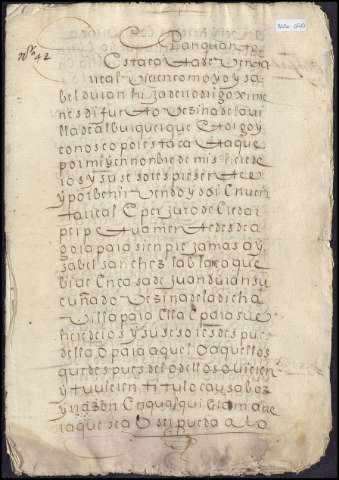 nº 42
Sepan quantos
esta carta de venta
real vieren como yo ysa
bel duran hija de rodrigo xime
nes difunto vezina de la vi
lla de alburquerque otorgo y
conosco por esta carta que
por mi y en nonbre de mis herede
ros y susesores presentes
y por benir vendo y doi en ven
ta real e per juro de eredad
perpetuamente desde a
gora para sienpre jamas a y
sabel sanchez la blaco que
bibe en casa de juan duran su
cuñado vezina de la dicha
villa para ella e para sus
herederos y susesores despues
della o para aquel o aquellos
que despues del o dellos ovieren
y tuvieren titulo causa boz
y razon en qualquier mane
ra que sea o ser pueda a lo